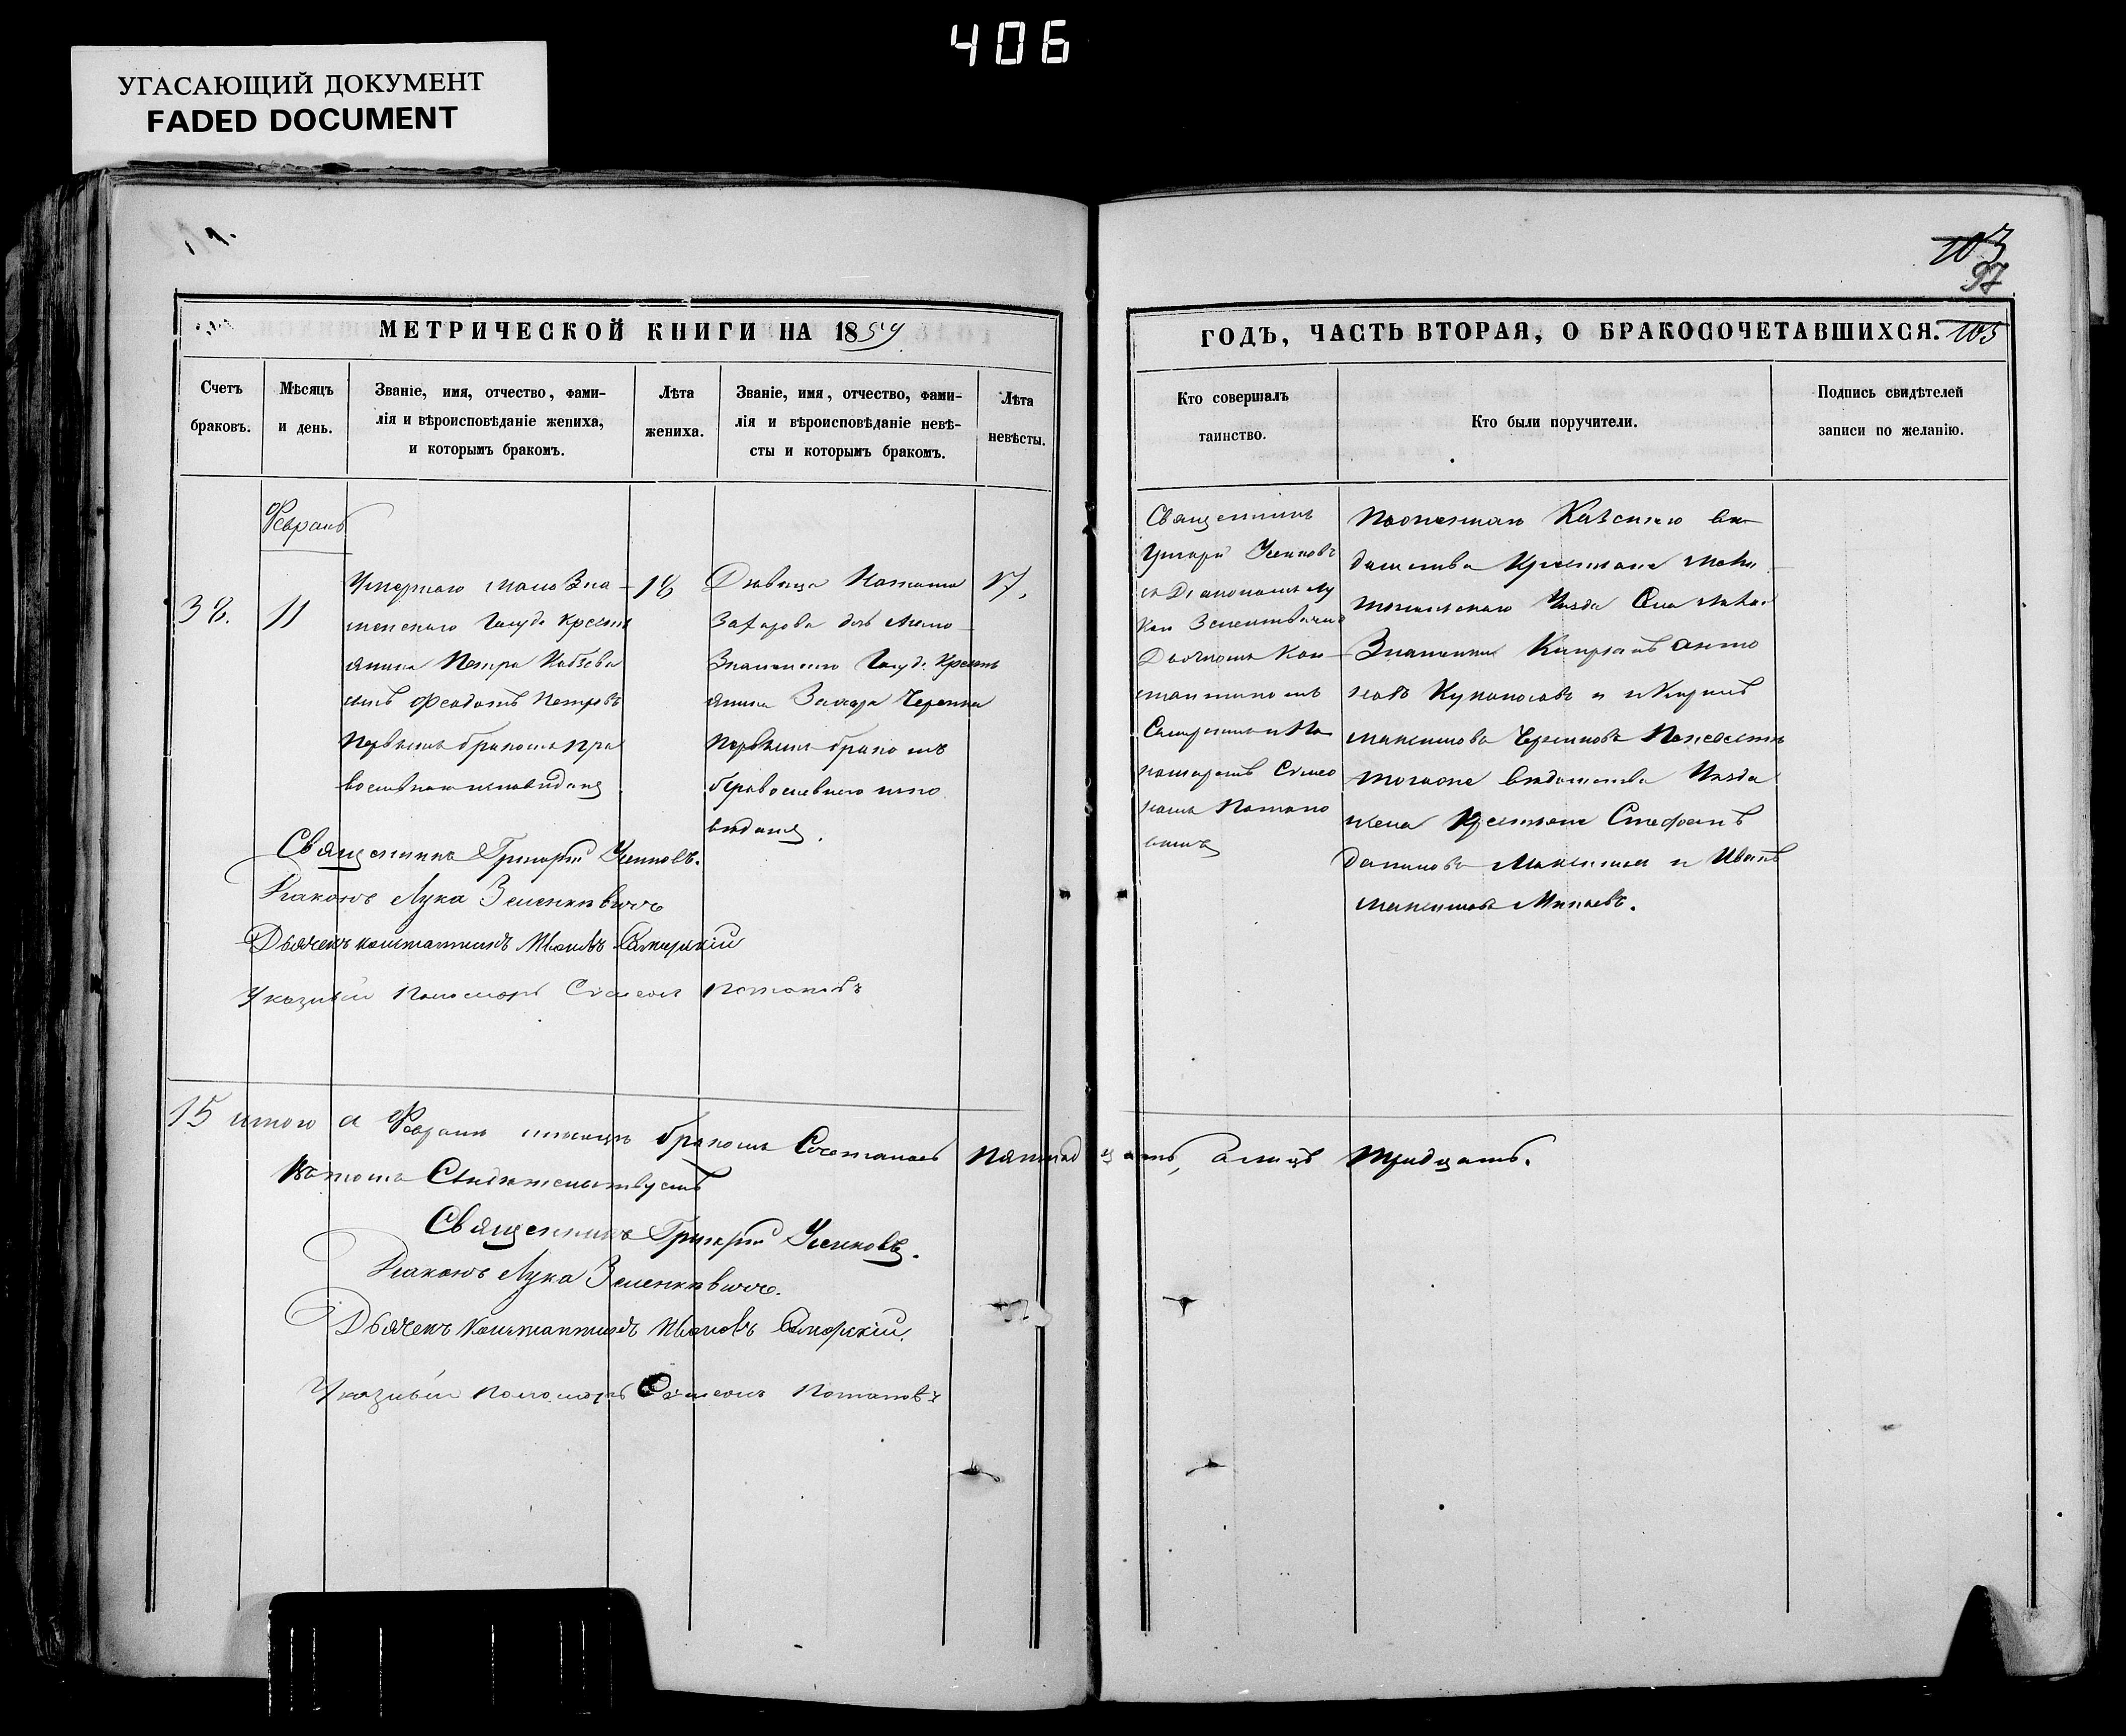 406
УГАСАЮЩИЙ ДОКУМЕНТ
FADED DOCUMENT
103
97
МЕТРИЧЕСКОЙ КНИГИ НА 1859
ГОДЪ, ЧАСТЬ ВТОРАЯ, О БРАКОСОЧЕТАВШИХСЯ. 105
Счетъ
браковъ.
Мѣсяцъ
и день.
Званіе, имя, отчество, фами-
лія и вѣроисповѣданіе жениха,
и которымъ бракомъ.
Лѣта
жениха.
Званіе, имя, отчество, фами-
лія и вѣроисповѣданіе невѣ-
сты и которымъ бракомъ.
Лѣта
невѣсты.
Кто совершалъ
таинство.
Кто были поручители.
Подпись свидѣтелей
записи по желанію.
Февраль
38.
11
Умершаго Мало Зна-
менскаго Госуд. Крестья
янина Петра
сынъ Феодотъ Петровъ
Первымъ бракомъ пра
вославнаго исповѣданія
18
Дѣвица
Захарова дочь Мало
Знаменского Госуд. Крестья
янина Захара
Первымъ бракомъ
православнаго испо
вѣданія.
17.
Священникъ
Григорій Усиковъ
съ Діакономъ Лу
кою Зеленкевичемъ
Дьячкомъ Кон
стантиномъ
и По
номаремъ Симео
номъ Потапо
вымъ
вѣ
домства Крестьяне
Уѣзда Села Мало
Знаменки Антo
новъ и
Максимовъ
вѣдомства Уѣзда
Крестьяне Стефанъ
Даниловъ и Иванъ
Максимовъ Минаевъ.
Священникъ Григорій Усиковъ.
Діаконъ Лука Зеленкевичъ
Дьячекъ Константинъ Ивановъ
Указный Пономарь Симеонъ Потаповъ
15 итого а Февраль мѣсяцъ бракомъ Сочеталось пятнадцать, а лицъ тридцать.
Въ томъ Свидѣтельствуемъ
Священникъ Григорій Усиковъ.
Діаконъ Лука Зеленкевичъ.
Дьячекъ Константинъ Ивановъ
Указный Пономарь Симеонъ Потаповъ